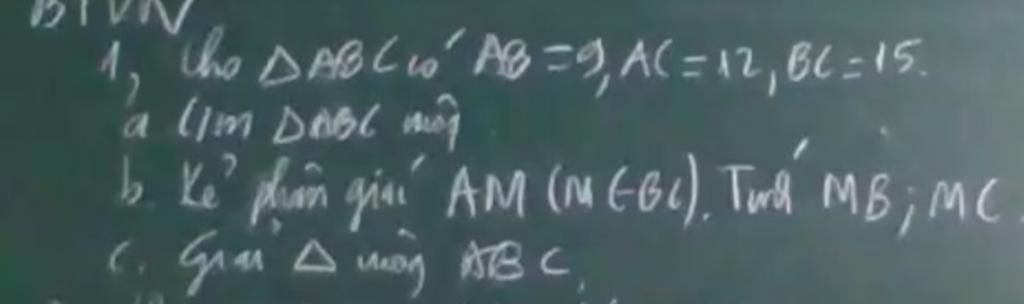 BTVN
1, Cho △ABC có AB = 9, AC = 12, BC = 15.
a C/m △ABC vuông
b. Kẻ phân giác AM (M ∈ BC). Tính MB; MC.
c. Giải △ vuông ABC,